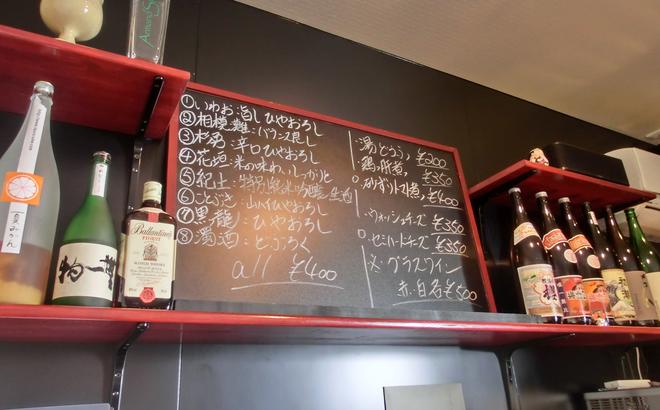 ①いわお:旨しひやおろし
②相模灘:バランス良し
③杉勇:辛口ひやおろし
④花垣:米の味わいしっかりと
⑤紀土:特別純米吟醸
⑥ことぶき:山廃ひやおろし
⑦黒龍:ひやおろし
⑧濁酒:どぶろく
all ¥400
湯どうふ ¥200
鶏肝煮 ¥350
砂ずりトマト煮 ¥400
ウォッシュチーズ ¥350
セミハードチーズ ¥350
グラスワイン
赤・白 各¥500
Ballantine's
FINEST